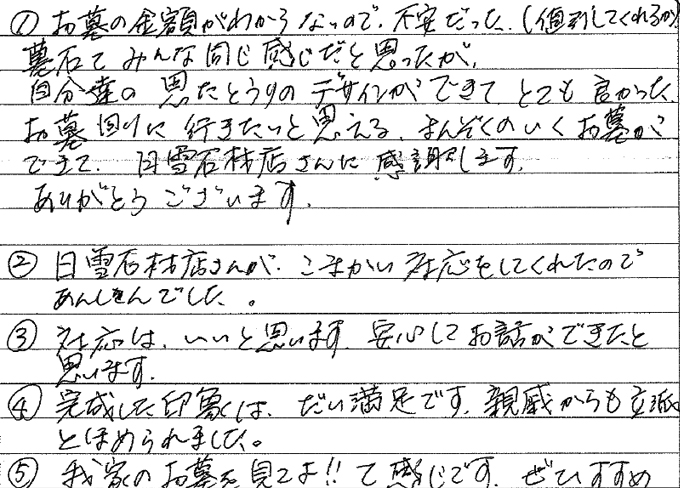 ① お墓の金額がわからないので、不安だった。(値引してくれるか)
墓石てみんな同じ感じだと思ったが、
自分達の思たとうりのデザインができてとても良かった。
お墓回りに行きたいと思える、まんぞくのいくお墓が
できて、日雪石材店さんに感謝します。
ありがとうございます。
② 日雪石材店さんが、こまかい対応をしてくれたので
あんしんでした。
③ 対応は、いいと思います。安心してお話ができたと
思います。
④ 完成した印象は、だい満足です。親戚からも立派
とほめられました。
⑤ 我家のお墓を見てよ!!て感じです。ぜひすすめ